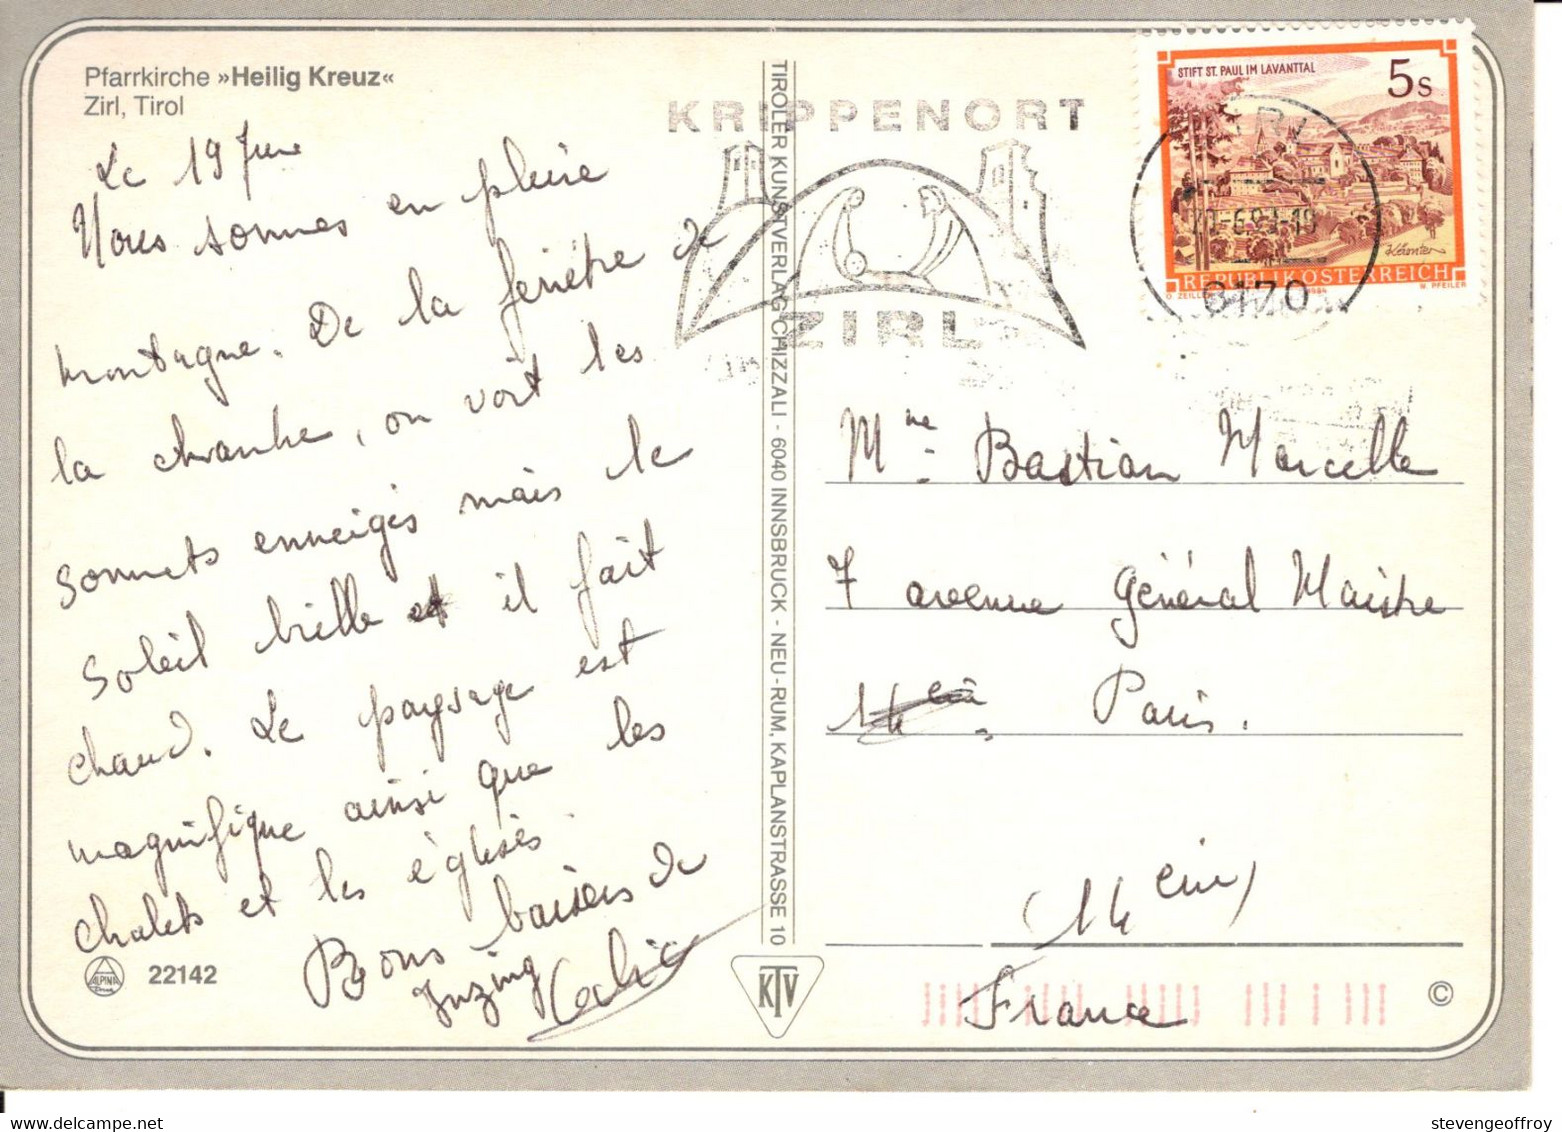 Pfarrkirche »Heilig Kreuz«
Zirl, Tirol
Le 19 June
Nous sommes en pleine
montagne. De la fenêtre de
la chambre, on voit les
sommets enneigés mais le
soleil brille et il fait
chaud. Le paysage est
magnifique ainsi que les
chalets et les églises
Bons baisers de
Inzing
ALPINA
22142
TIROLER KUNSTVERLAG CHIZZALI - 6040 INNSBRUCK - NEU-RUM, KAPLANSTRASSE 10
KTV
KRIPPENORT
ZIRL
STIFT ST. PAUL IM LAVANTTAL
5 S
REPUBLIK ÖSTERREICH
M. PFEILER
6170
Mme Bastian Marcelle
7 avenue Général Maistre
14 Paris.
(14 ème)
France
©
www.delcampe.net
stevengeoffroy